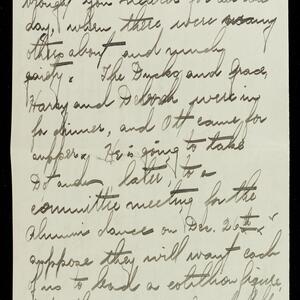 day, when there were many
others about and much
gaiety. The Dycks, and Grace,
Harry and Deborah were in
for dinner, and Ott came for
supper. He is going to take
Dot and later to a
committee meeting for the
Alumni dance on Dec. 26th. I
suppose they will want each
of us to lead a cotillion figure,